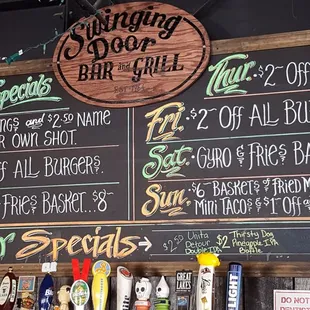 Swinging
Door
BAR and GRILL
Specials
NGS and $2.50 NAME
R OWN SHOT.
ALL BURGERS.
FRIES BASKET...$8
Thur. $2 OFF
Fri. $2 OFF ALL BU
Sat. GYRO & FRIES BA
Sun. $6 BASKETS & FRIED M
MINI TACOS & $1 OFF A
Specials →
$2.50 Unita
Detour
Double IPA
$2 Thirsty Dog
Pineapple IPA
Bottle
GREAT
LAKES
LIGHT
DO NOT